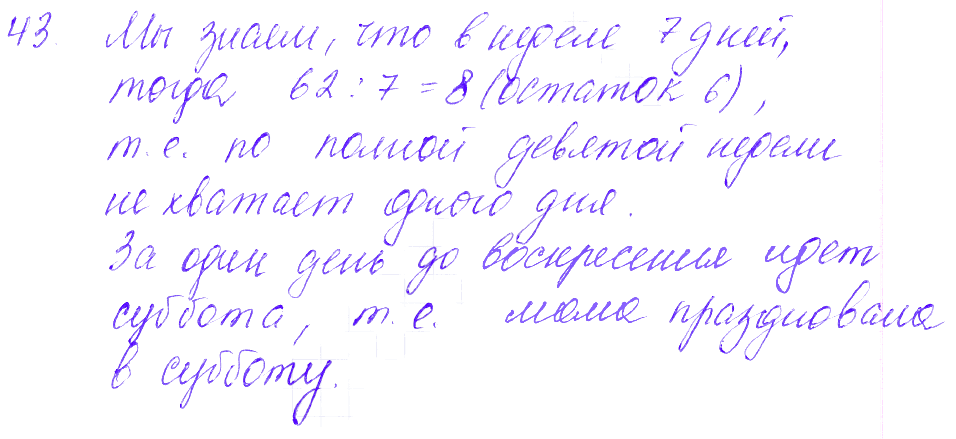 43. Мы знаем, что в неделе 7 дней,
тогда 62 : 7 = 8 (остаток 6),
т.е. по полной девятой недели
не хватает одного дня.
За один день до воскресения идет
суббота, т.е. мама праздновала
в субботу.